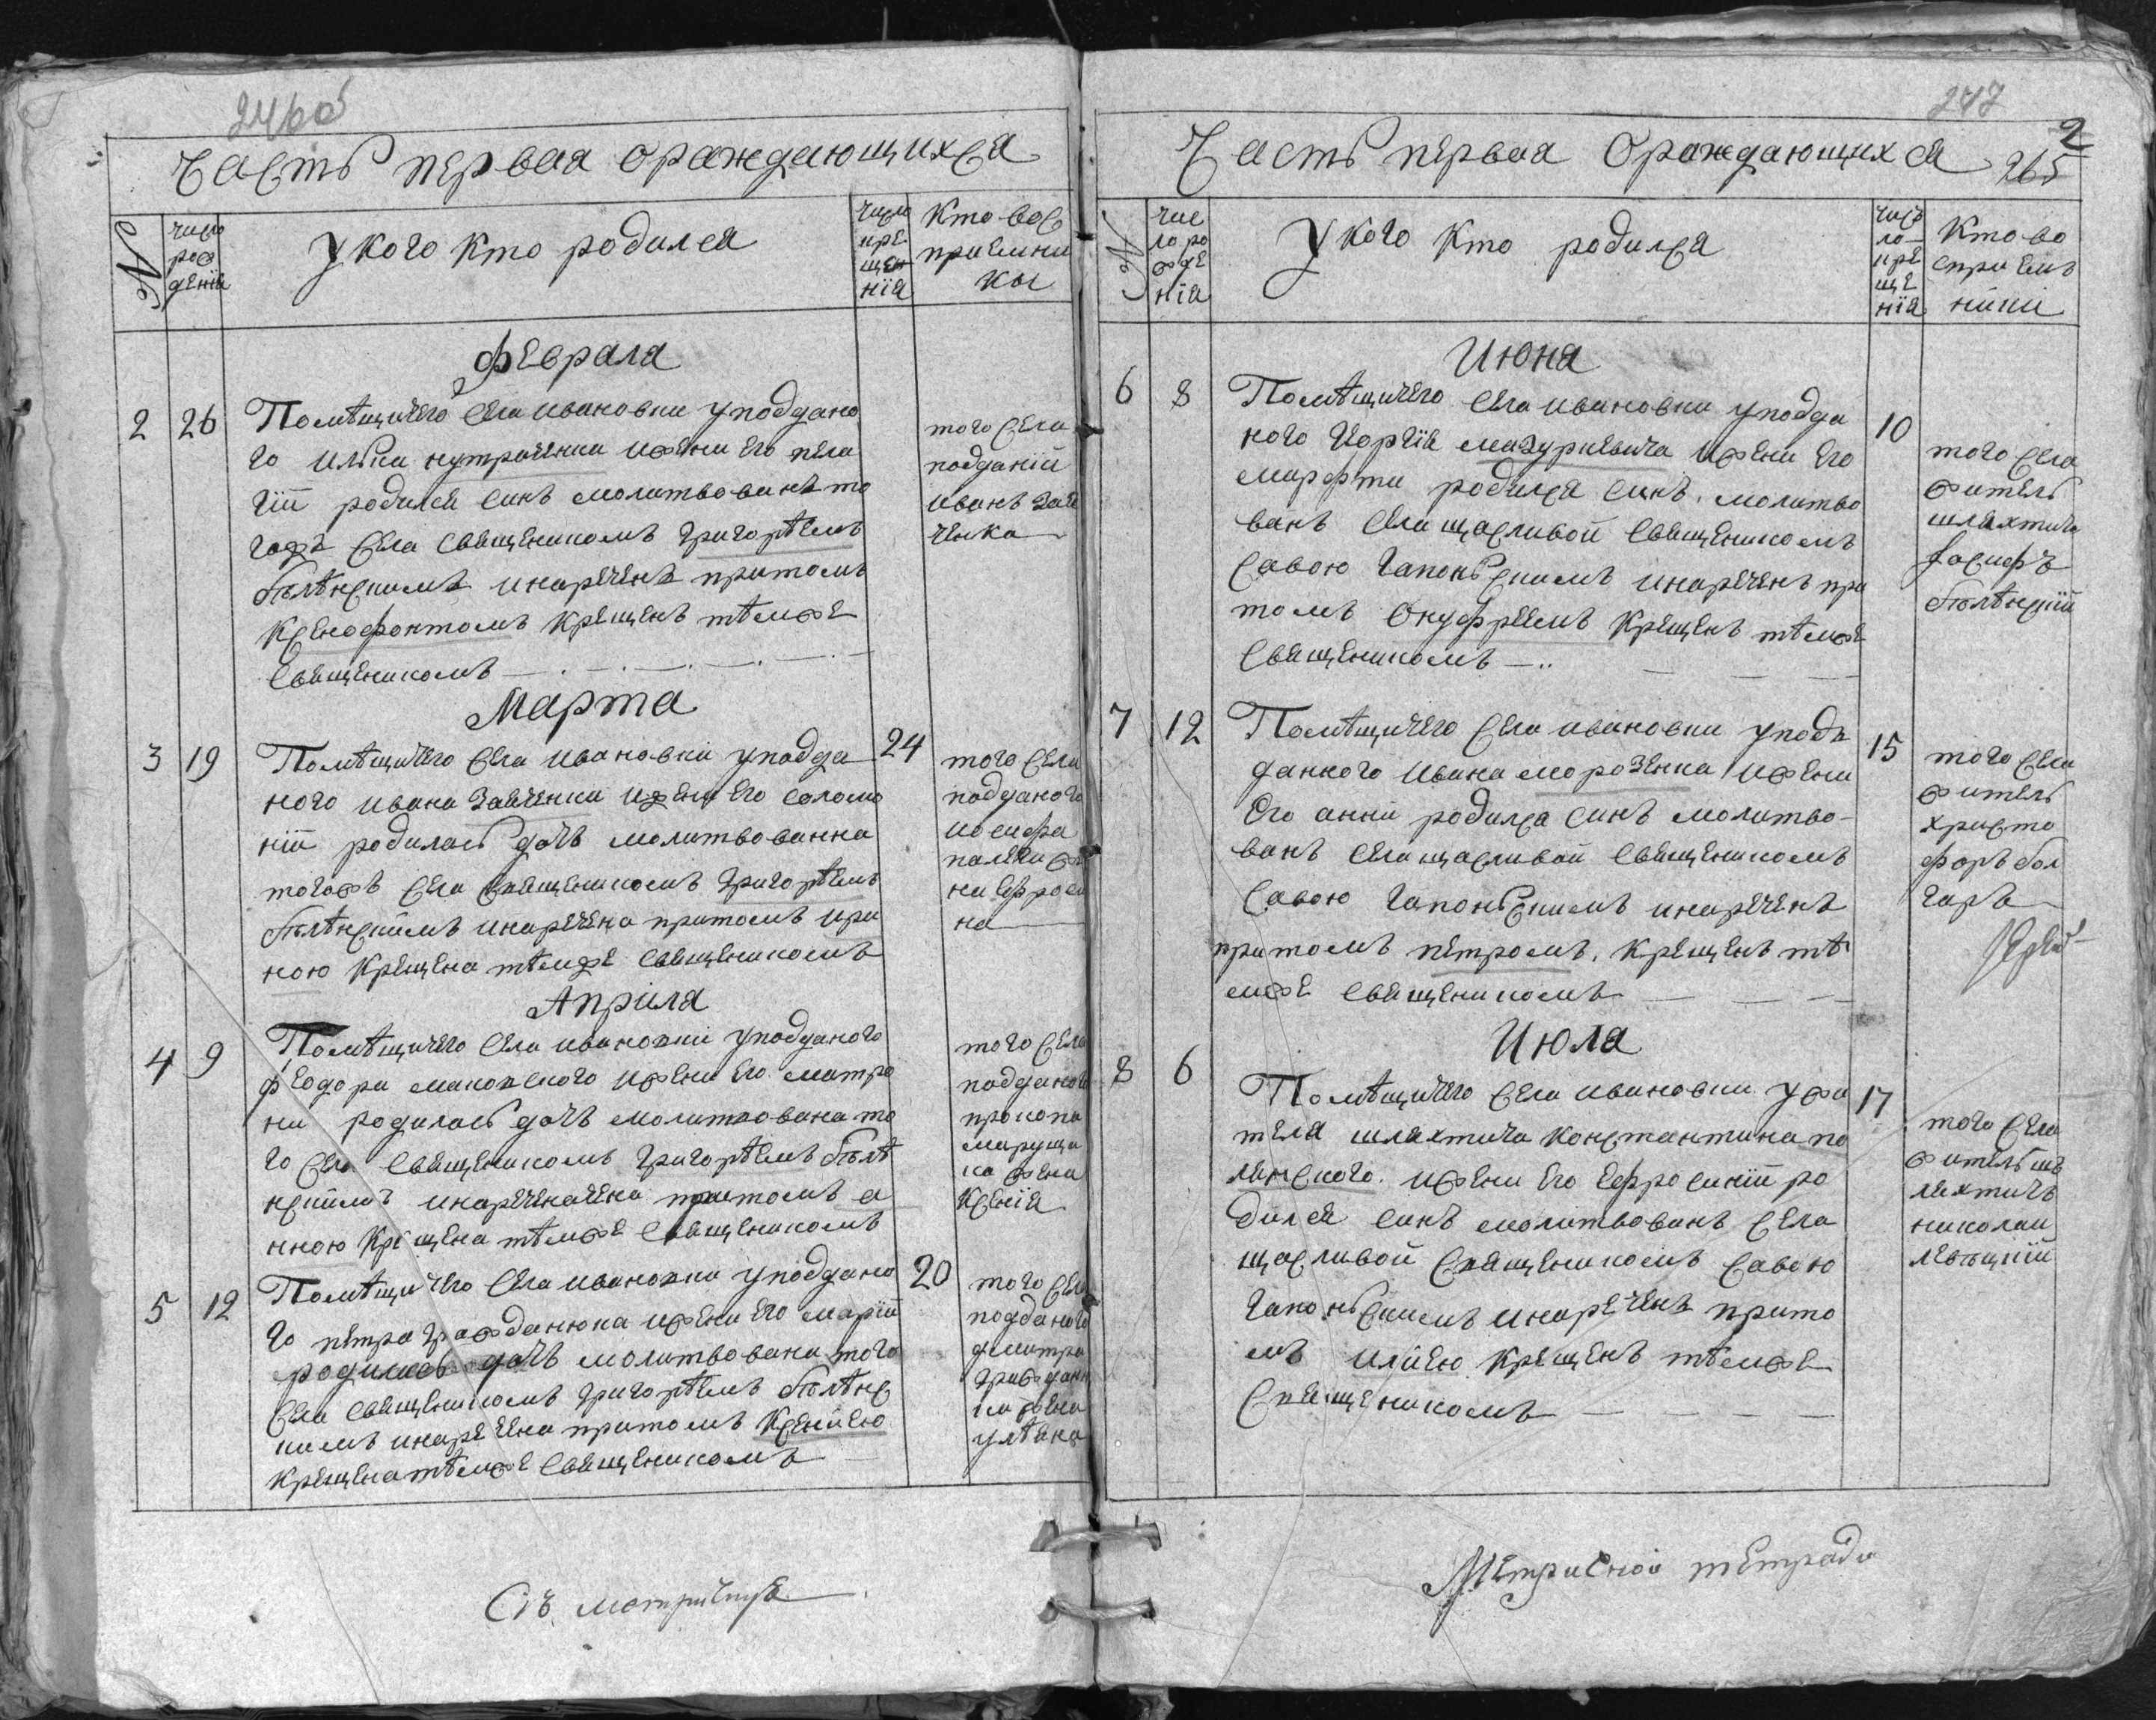 246об
Часть первая ораждающихся
№
число рож денїя
У кого кто родился
число кре щенїя
Кто вос приемни ки
Февраля
2
26
Помѣщичего села ивановки уподдано
го илька кутраченка ижени его пела
гїи родился синъ молитвованъ то
гожъ села священикомъ григорѣемъ
бѣлѣнскимъ инареченъ притомъ
Ксенофонтомъ Крещенъ тѣмже
священикомъ
того села
подданїй
иванъ зай
ченко
Марта
3
19
Помѣщичего села ивановкї уподда
ного ивана зайченка ижени его соломо
нїи родилась дочъ молитвованна
тогожъ села священикомъ григорѣемъ
бѣлѣнскимъ инаречена притомъ ири
ною крещена тѣмже священикомъ
24
того села
подданого
иосифа
жe
на Ефроси
на
Апрїля
4
9
Помѣщичего села ивановки уподданого
феодора маковского ижени его матро
ни родилась дочъ молитвована то
го села священикомъ григорѣемъ бѣлѣ
нскимъ инареченачена притомъ а
нною крещена тѣмже священикомъ
того села
подданого
прокопа
марущи
ка жена
Ксенїя
5
12
Помѣщичего села ивановки уподдано
го петра гражданюка ижени его марїи
родилась дочъ молитвована того
села священикомъ григорѣемъ бѣлѣнс
кимъ инаречена притомъ Ксенїею
крещена тѣмже священикомъ
20
того села
подданого
дмитра
граждан
ка жена
улѣяна
247
2
265
Часть первая Ораждающихся
№
чис ло ро жде нїя
У кого кто родился
число кре ще нїя
Кто во сприем ники
Июня
6
8
Помѣщичего села ивановки уподда
ного Иоргїя мазуркевича ижени его
марфти родился синъ. молитво
ванъ села щасливой священикомъ
савою гапонскимъ инареченъ при
томъ Онуфрѣемъ крещенъ тѣмже
священикомъ
10
того села
житель
шляхтичъ
Иосифъ
бѣлѣнскїй
7
12
Помѣщичего села ивановки уподъ
данного ивана морозенка ижени
Его анни родился синъ молитво-
ванъ села щасливой священикомъ
савою гапонскимъ инареченъ
притомъ петромъ. крещенъ тѣ
мже священикомъ
15
того села
житель
христо
форъ бол
гаръ
Иерей
Июля
8
6
Помѣщичего села ивановки ужи
теля шляхтича константина по
лянского. ижени его Ефросинїи ро
дился синъ молитвованъ села
щасливой священикомъ савою
гапонскимъ инареченъ прито
мъ илїею крещенъ тѣмже
священикомъ
17
того села
житель шъ
ляхтичъ
николай
левицкїй
Метрисной тетради